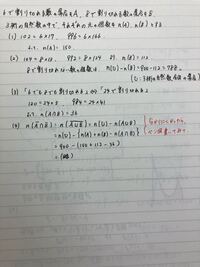 6で割り切れる数の集合をA, 8で割り切れる数の集合をB
3桁の自然数の中で、それぞれの元の個数を n(A), n(B) とする
(1) 102=6×17, 996=6×166
より n(A)=150
(2) 104=8×13, 992=8×124 より n(B)=112
8で割り切れない数の個数は n(U)-n(B)=900-112=788,
(U:3桁の自然数全体の集合)
(3) 「6でも8でも割り切れる」⇔「24で割り切れる」
120=24×5, 984=24×41
より n(A∩B)=
(4) n(A̅∩B̅)=n(A̅∪̅B̅)=n(U)-n(A∪B)
=n(U)-{n(A)+n(B)-n(A∩B)}
=900-(150+112-
=(略)
ベン図書いてみて